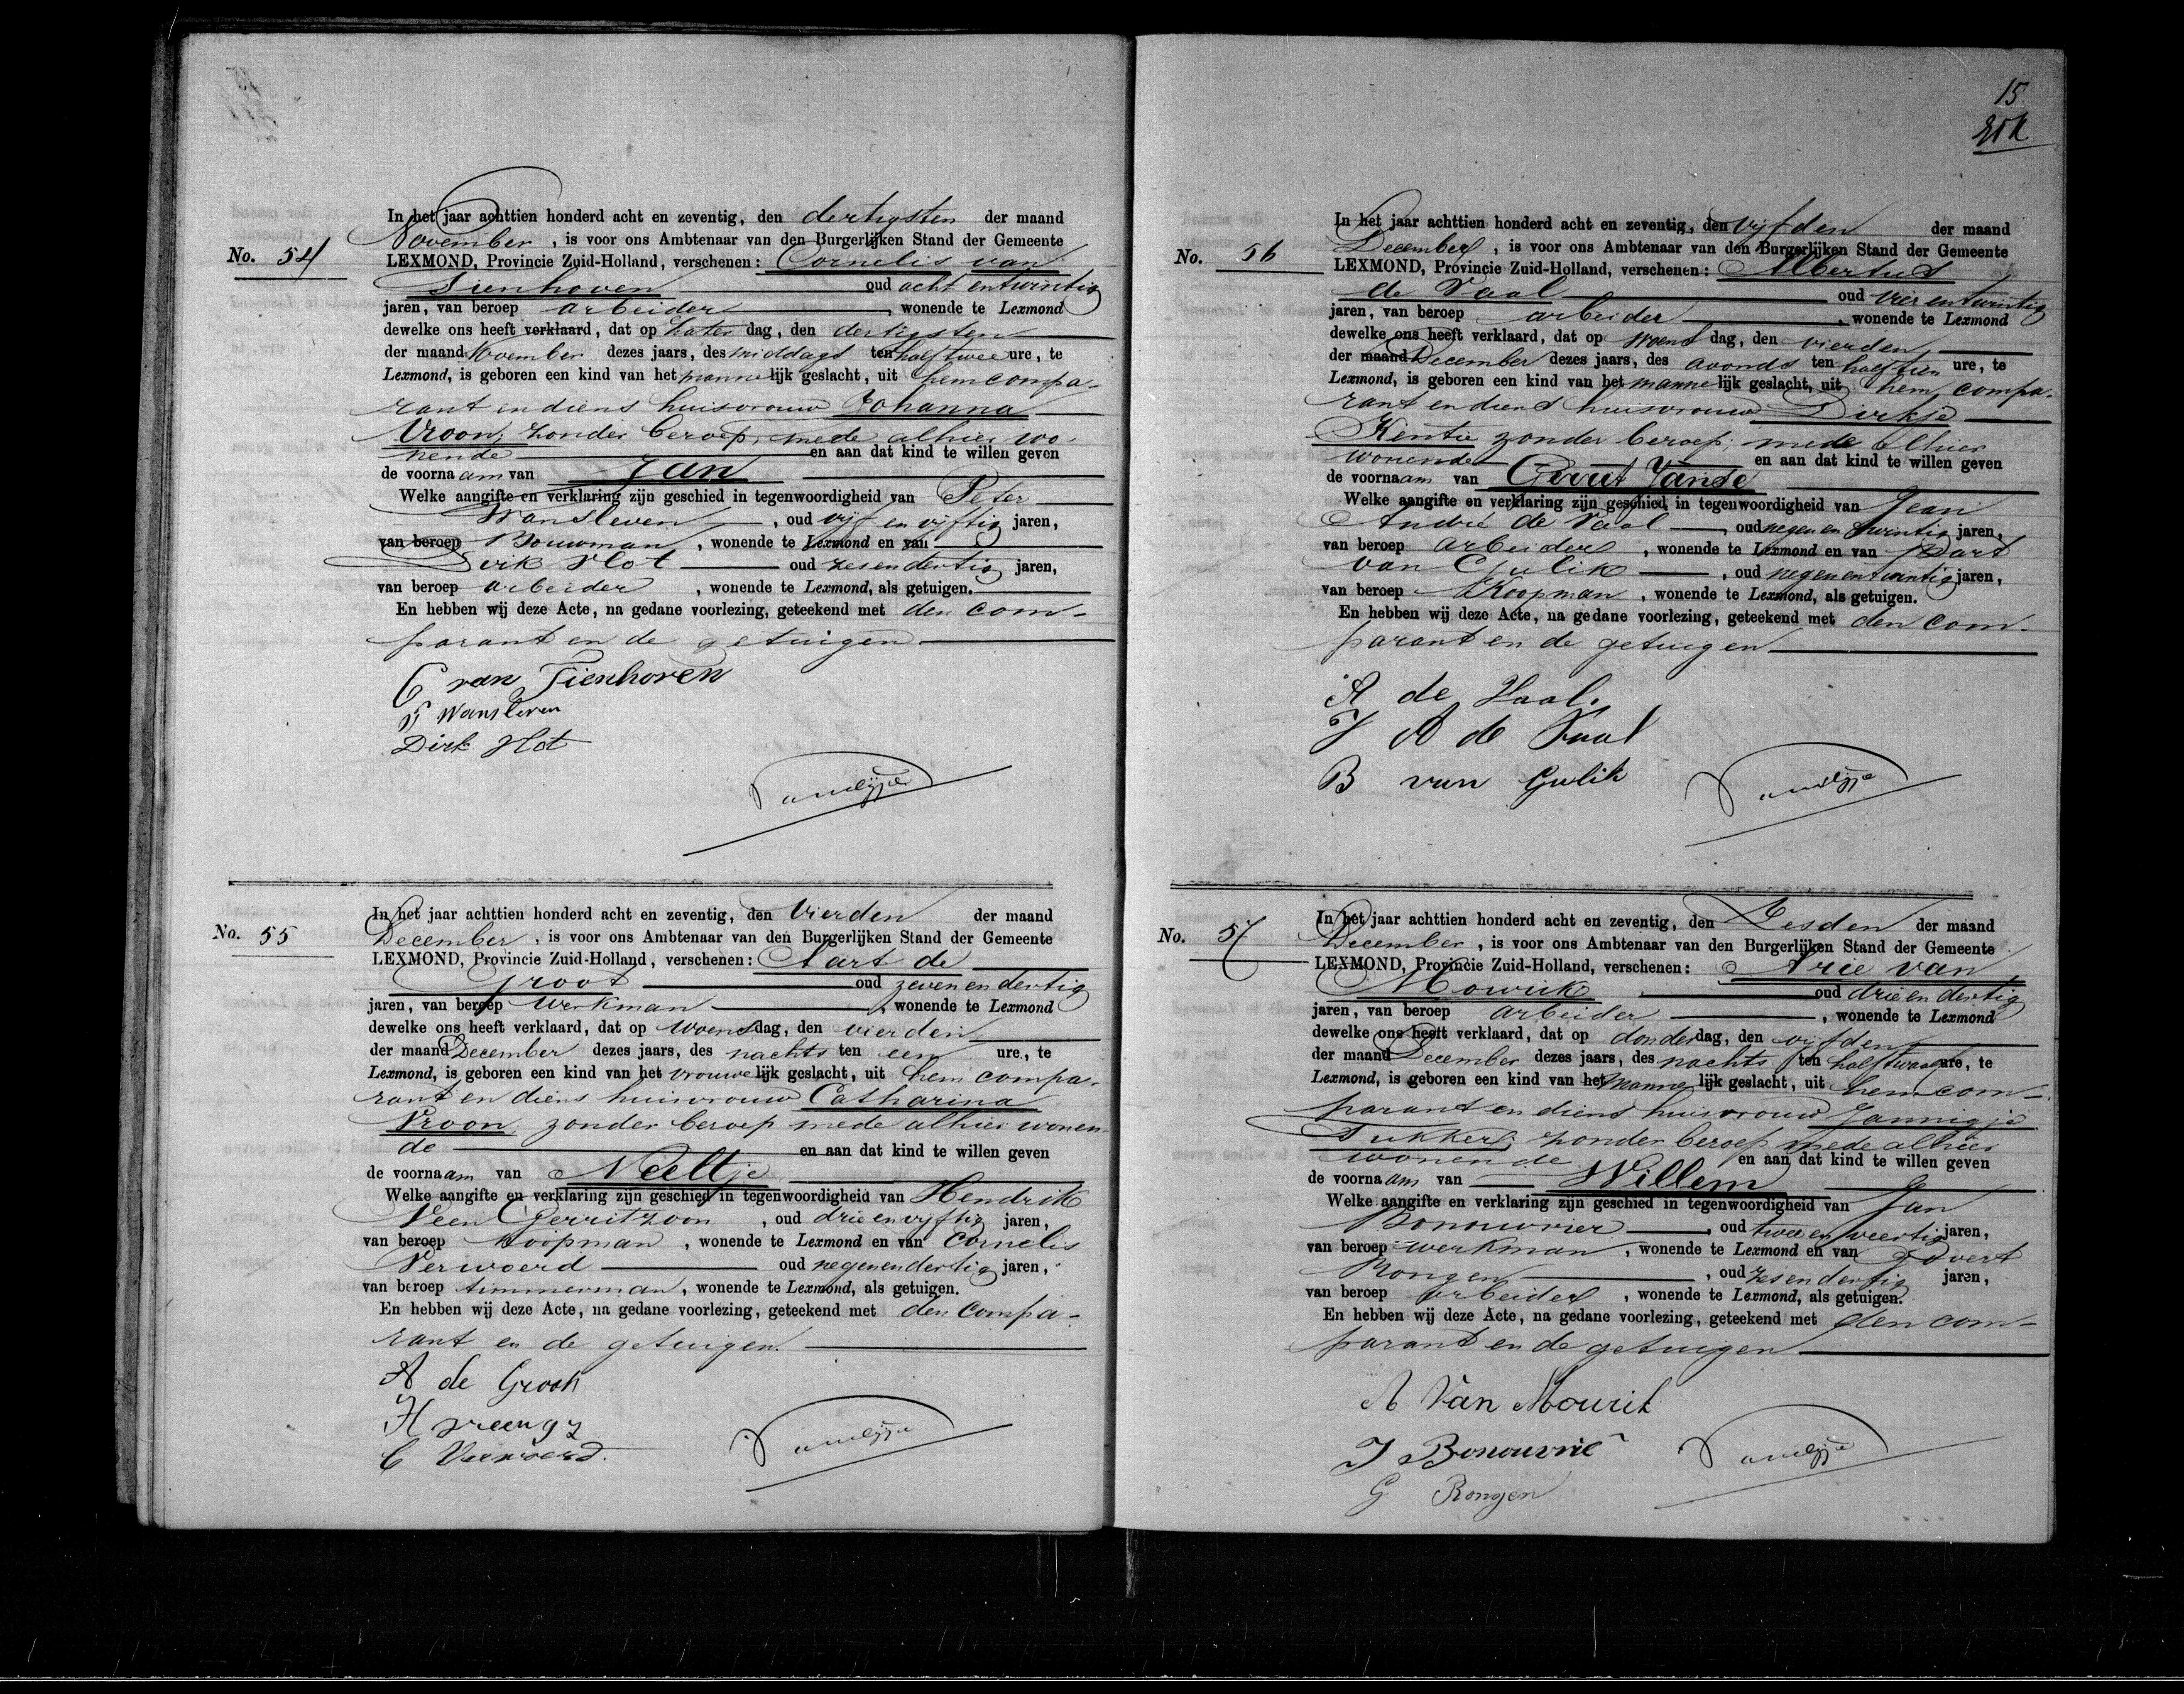 In het jaar achttien honderd acht en zeventig, den dertigsten der maand
November, is voor ons Ambtenaar van den Burgerlijken Stand der Gemeente
No. 54
LEXMOND, Provincie Zuid-Holland, verschenen: Cornelis van
Tienhoven oud acht en twintig
jaren, van beroep arbeider, wonende te Lexmond
dewelke ons heeft verklaard, dat op Zaterdag, den dertigsten
der maand November dezes jaars, des middags ten half twee ure, te
Lexmond, is geboren een kind van het mannelijk geslacht, uit hem compa-
rant en diens huisvrouw Johanna
Vroon, zonder beroep, mede alhier wo-
nende en aan dat kind te willen geven
de voornaam van Jan
Welke aangifte en verklaring zijn geschied in tegenwoordigheid van Peter
Wansleven, oud vijf en vijftig jaren,
van beroep Bouwman, wonende te Lexmond en van
Dirk Hot oud zesendertig jaren,
van beroep arbeider, wonende te Lexmond, als getuigen.
En hebben wij deze Acte, na gedane voorlezing, geteekend met den com-
parant en de getuigen
C van Tienhoven
P Wansleven
Dirk Hot
In het jaar achttien honderd acht en zeventig, den Vierden der maand
No. 55
December, is voor ons Ambtenaar van den Burgerlijken Stand der Gemeente
LEXMOND, Provincie Zuid-Holland, verschenen: Aart de
Groot oud zevenendertig
jaren, van beroep Werkman, wonende te Lexmond
dewelke ons heeft verklaard, dat op Woensdag, den vierden
der maand December dezes jaars, des nachts ten een ure, te
Lexmond, is geboren een kind van het vrouwelijk geslacht, uit hem compa-
rant en diens huisvrouw Catharina
Vroon, zonder beroep mede alhier wonen-
de en aan dat kind te willen geven
de voornaam van Neeltje
Welke aangifte en verklaring zijn geschied in tegenwoordigheid van Hendrik
Veen Gerritzoon, oud drie en vijftig jaren,
van beroep Koopman, wonende te Lexmond en van Cornelis
Verwoerd oud negenendertig jaren,
van beroep timmerman, wonende te Lexmond, als getuigen.
En hebben wij deze Acte, na gedane voorlezing, geteekend met den compa-
rant en de getuigen.
A de Groot
H Veen gz
C Verwoerd.
15
In het jaar achttien honderd acht en zeventig, den vijfden der maand
No. 56
December, is voor ons Ambtenaar van den Burgerlijken Stand der Gemeente
LEXMOND, Provincie Zuid-Holland, verschenen: Albertus
de Vaal oud vier en twintig
jaren, van beroep arbeider, wonende te Lexmond
dewelke ons heeft verklaard, dat op Woensdag, den vierden
der maand December dezes jaars, des avonds ten half tien ure, te
Lexmond, is geboren een kind van het mannelijk geslacht, uit hem, compa-
rant en diens huisvrouw Dirkje
Kentie zonder beroep, mede alhier
wonende en aan dat kind te willen geven
de voornaam van Gerrit Janse
Welke aangifte en verklaring zijn geschied in tegenwoordigheid van Jean
André de Vaal, oud negen en twintig jaren,
van beroep arbeider, wonende te Lexmond en van Bart
van Gulik, oud negen en twintig jaren,
van beroep Koopman, wonende te Lexmond, als getuigen.
En hebben wij deze Acte, na gedane voorlezing, geteekend met den com-
parant en de getuigen
A de Vaal.
J A de Vaal
B van Gulik
In het jaar achttien honderd acht en zeventig, den Zesden der maand
No. 57
December, is voor ons Ambtenaar van den Burgerlijken Stand der Gemeente
LEXMOND, Provincie Zuid-Holland, verschenen: Arie van
Mourik oud drie en dertig
jaren, van beroep arbeider, wonende te Lexmond
dewelke ons heeft verklaard, dat op donderdag, den vijfden
der maand December dezes jaars, des nachts ten half twaalf ure, te
Lexmond, is geboren een kind van het mannelijk geslacht, uit hem com-
parant en diens huisvrouw Jannigje
Tukker, zonder beroep mede alhier
wonende en aan dat kind te willen geven
de voornaam van Willem
Welke aangifte en verklaring zijn geschied in tegenwoordigheid van Jan
Bonouvrier, oud twee en veertig jaren,
van beroep werkman, wonende te Lexmond en van Govert
Rongen, oud zesendertig jaren,
van beroep arbeider, wonende te Lexmond, als getuigen.
En hebben wij deze Acte, na gedane voorlezing, geteekend met den com-
parant en de getuigen
A Van Mourik
J Bonouvrie
G Rongen